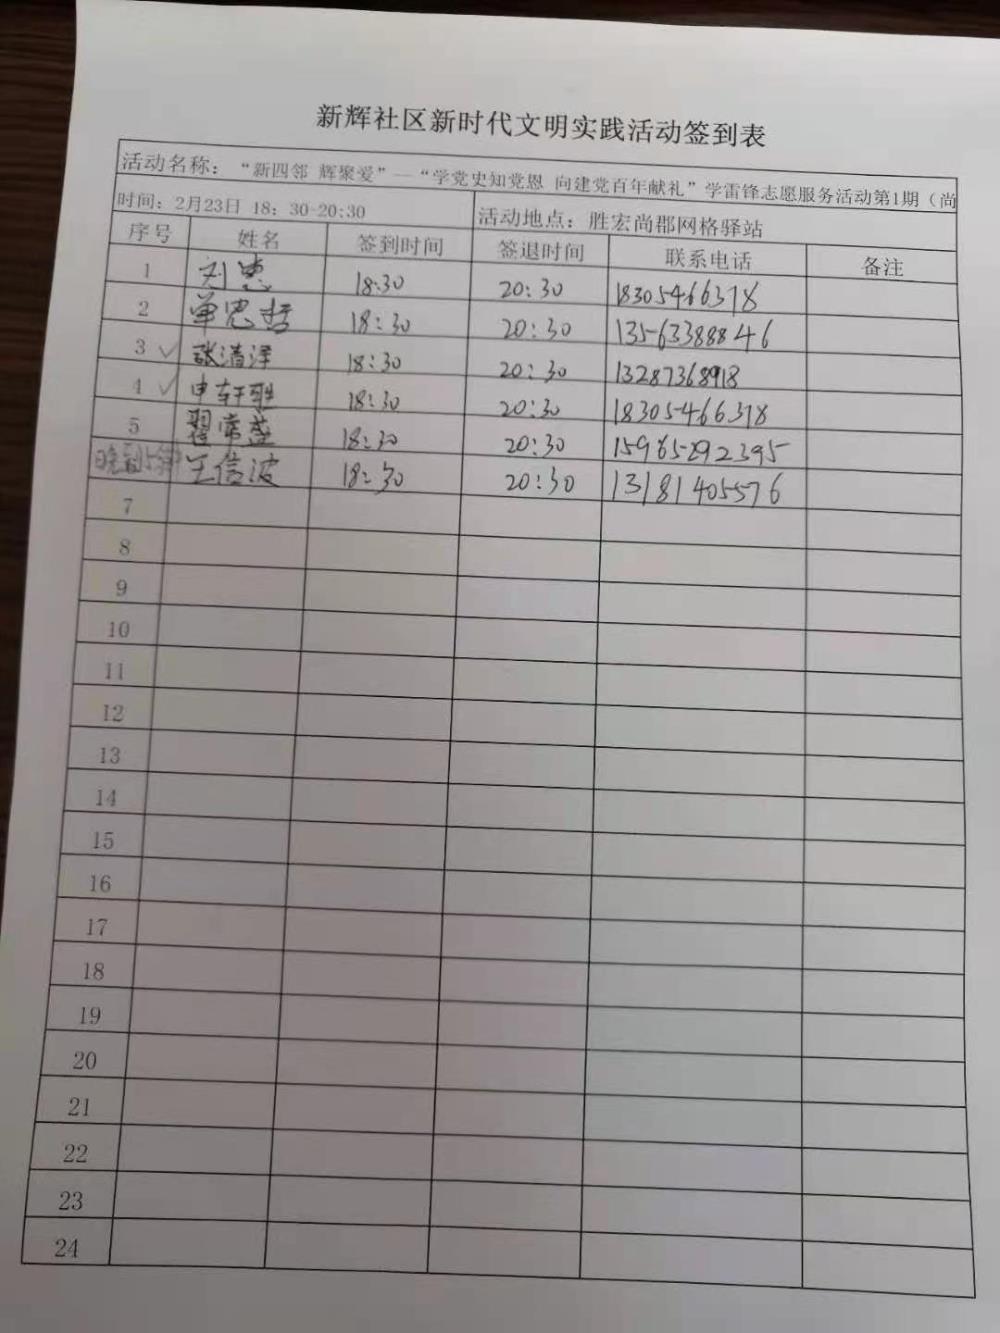 新辉社区新时代文明实践活动签到表
活动名称：“新四邻 辉聚爱”—“学党史知党恩 向建党百年献礼”学雷锋志愿服务活动第1期（尚
时间：2月23日 18：30-20:30 活动地点：胜宏尚郡网格驿站
序号 姓名 签到时间 签退时间 联系电话 备注
1 刘惠 18:30 20:30 18305466378
2 单思哲 18:30 20:30 13563388846
3 ✓ 张清洋 18:30 20:30 13287368918
4 ✓ 申轩 18:30 20:30 18305466378
5 翟常盛 18:30 20:30 15965292395
晚到5分钟 王信波 18:30 20:30 13181405576
7
8
9
10
11
12
13
14
15
16
17
18
19
20
21
22
23
24